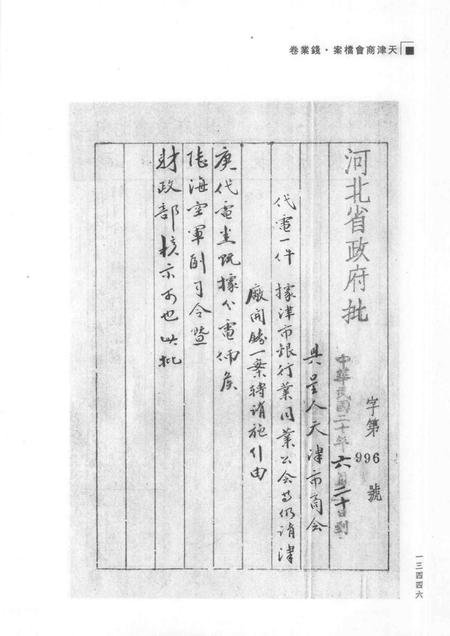 天津商會檔案·錢業卷
河北省政府批
字第996號
中華民國二十年六月二十日到
具呈人天津市商会
代電一件 據津市銀行業同業公会等仍請津
廠開鑄一案轉請施行由
庚代電悉既據分電仰候
陸海空軍副司令暨
財政部核示可也此批
一三四四六